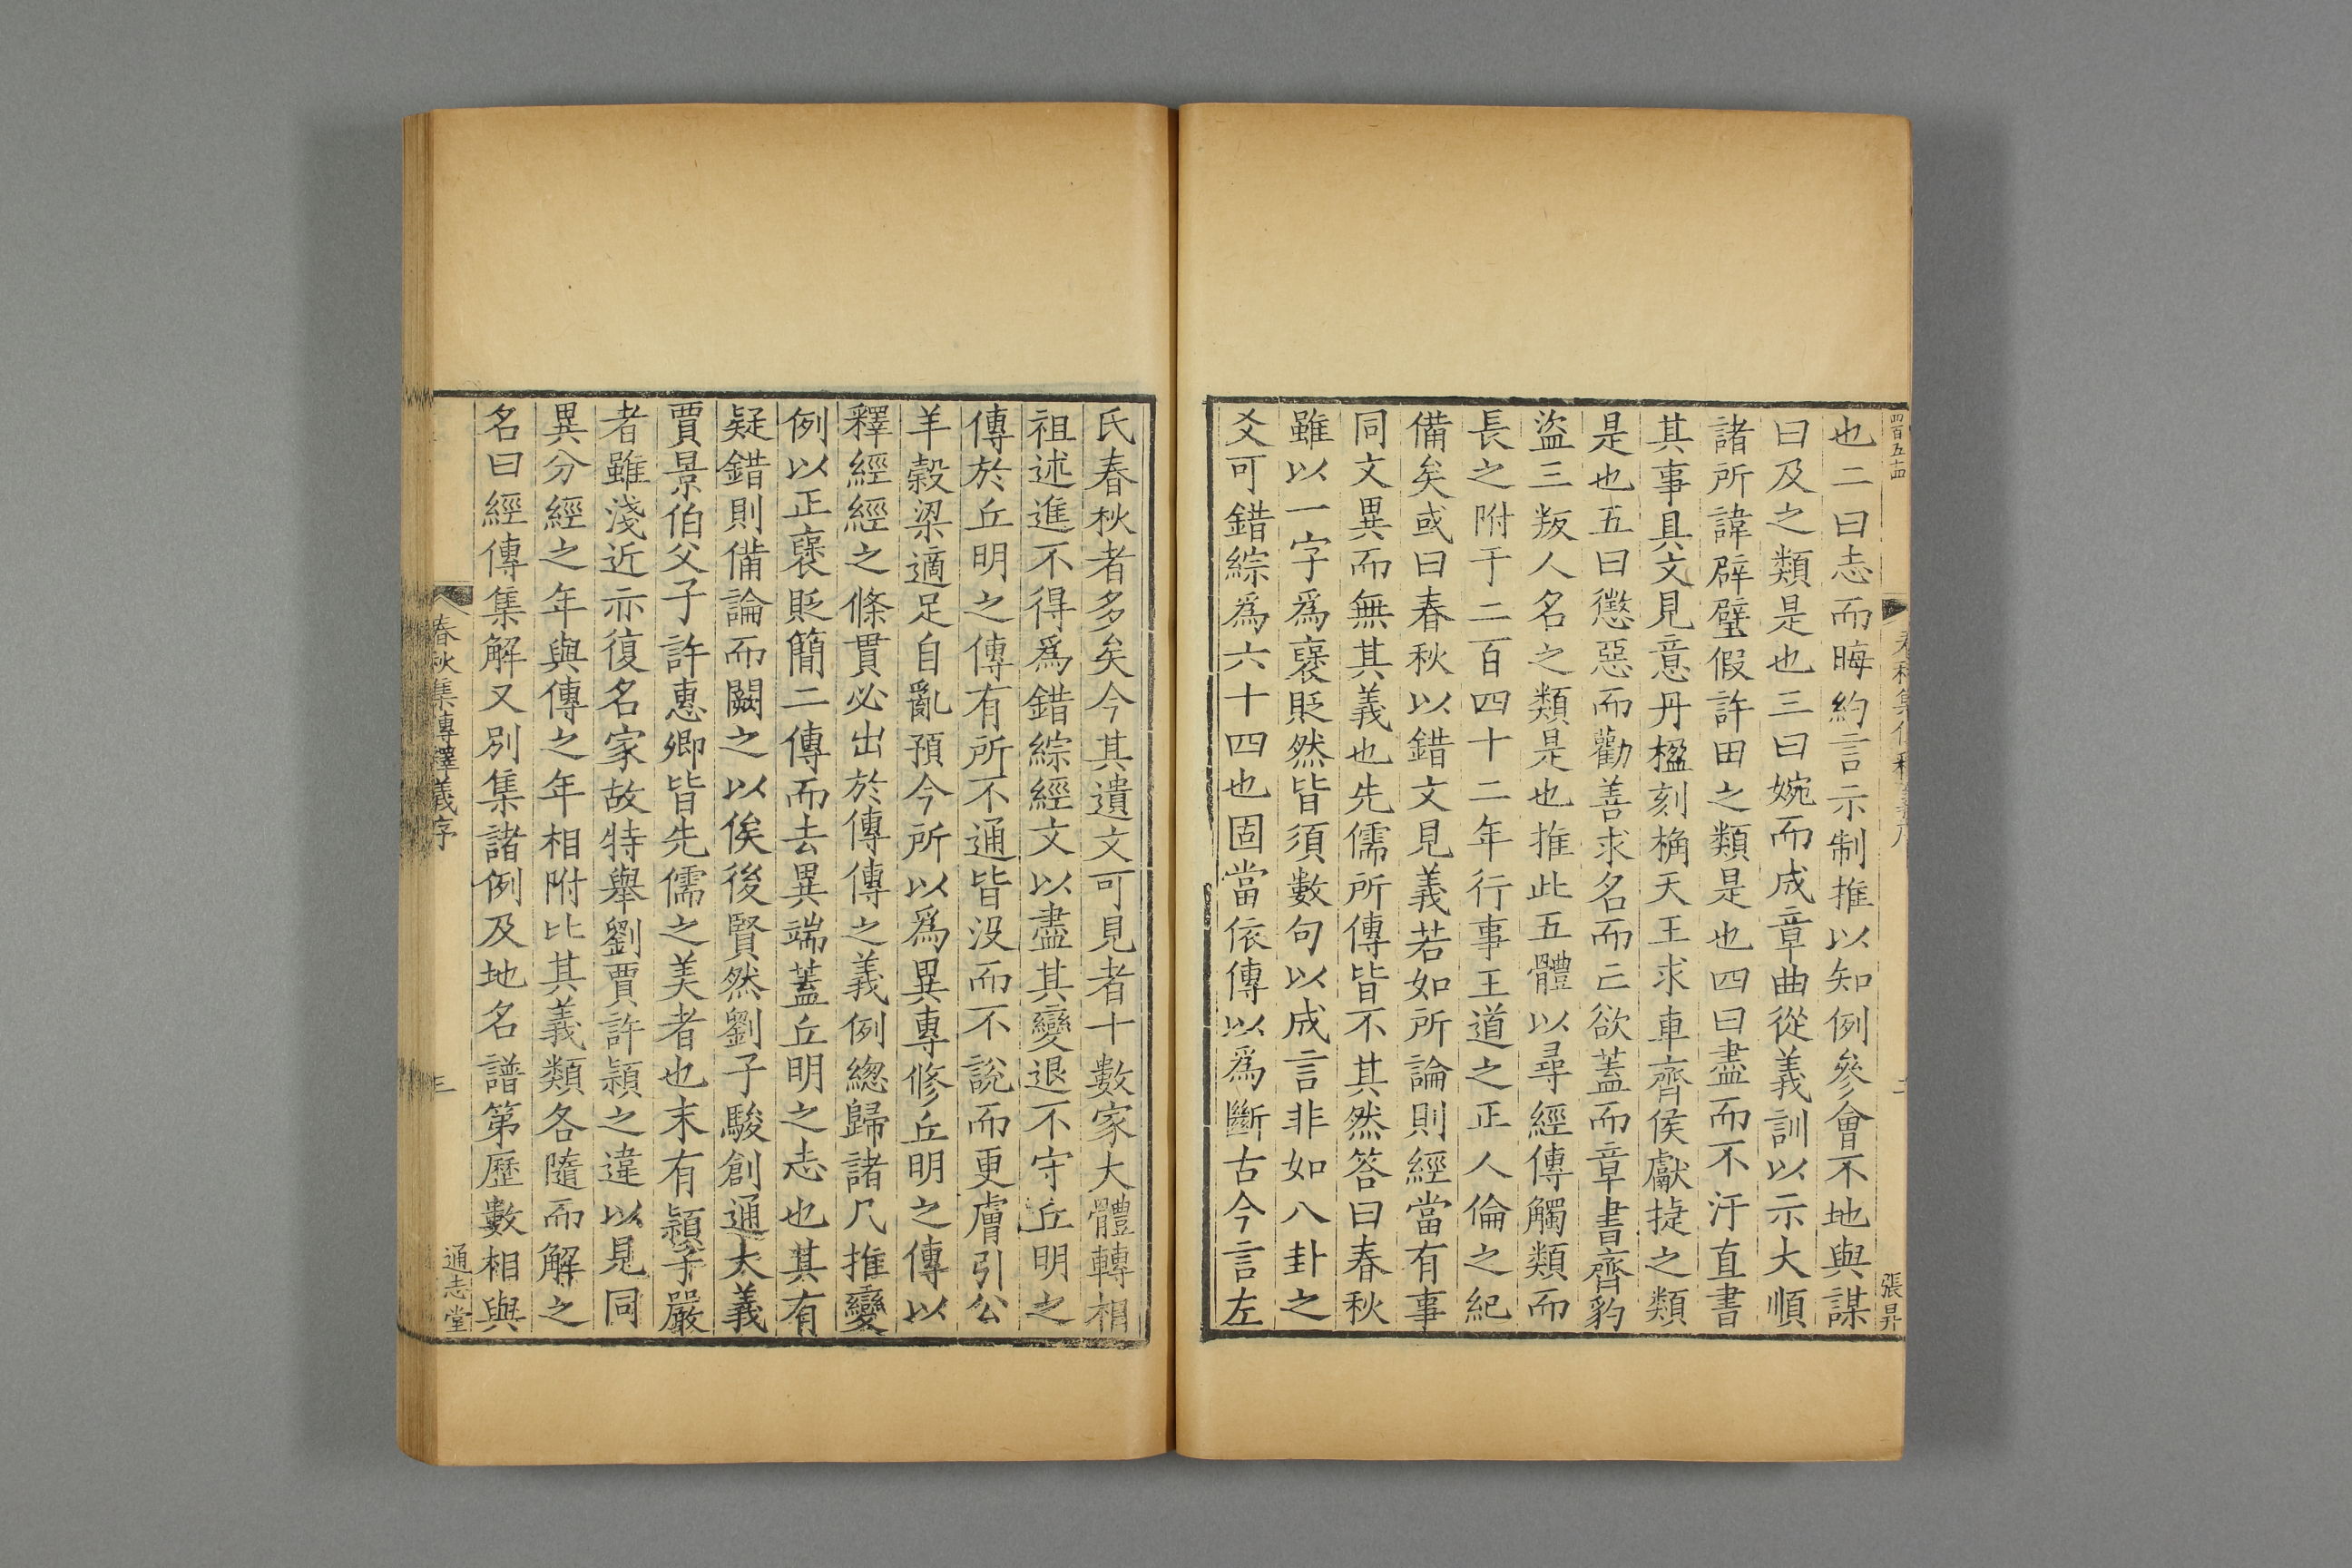 四百五十四
張昇
也二曰志而晦約言示制推以知例參會不地與謀
曰及之類是也三曰婉而成章曲從義訓以示大順
諸所諱辟璧假許田之類是也四曰盡而不汙直書
其事具文見意丹楹刻桷天王求車齊侯獻捷之類
是也五曰懲惡而勸善求名而亡欲蓋而章書齊豹
盜三叛人名之類是也推此五體以尋經傳觸類而
長之附于二百四十二年行事王道之正人倫之紀
備矣或曰春秋以錯文見義若如所論則經當有事
同文異而無其義也先儒所傳皆不其然答曰春秋
雖以一字爲襃貶然皆須數句以成言非如八卦之
爻可錯綜爲六十四也固當依傳以爲斷古今言左
氏春秋者多矣今其遺文可見者十數家大體轉相
祖述進不得爲錯綜經文以盡其變退不守丘明之
傳於丘明之傳有所不通皆没而不說而更膚引公
羊穀梁適足自亂預今所以爲異專修丘明之傳以
釋經經之條貫必出於傳傳之義例總歸諸凡推變
例以正襃貶簡二傳而去異端蓋丘明之志也其有
疑錯則備論而闕之以俟後賢然劉子駿創通大義
賈景伯父子許惠卿皆先儒之美者也末有潁子嚴
者雖淺近亦復名家故特舉劉賈許潁之違以見同
異分經之年與傳之年相附比其義類各隨而解之
名曰經傳集解又別集諸例及地名譜第歷數相與
春秋集傳釋義序
三
通志堂